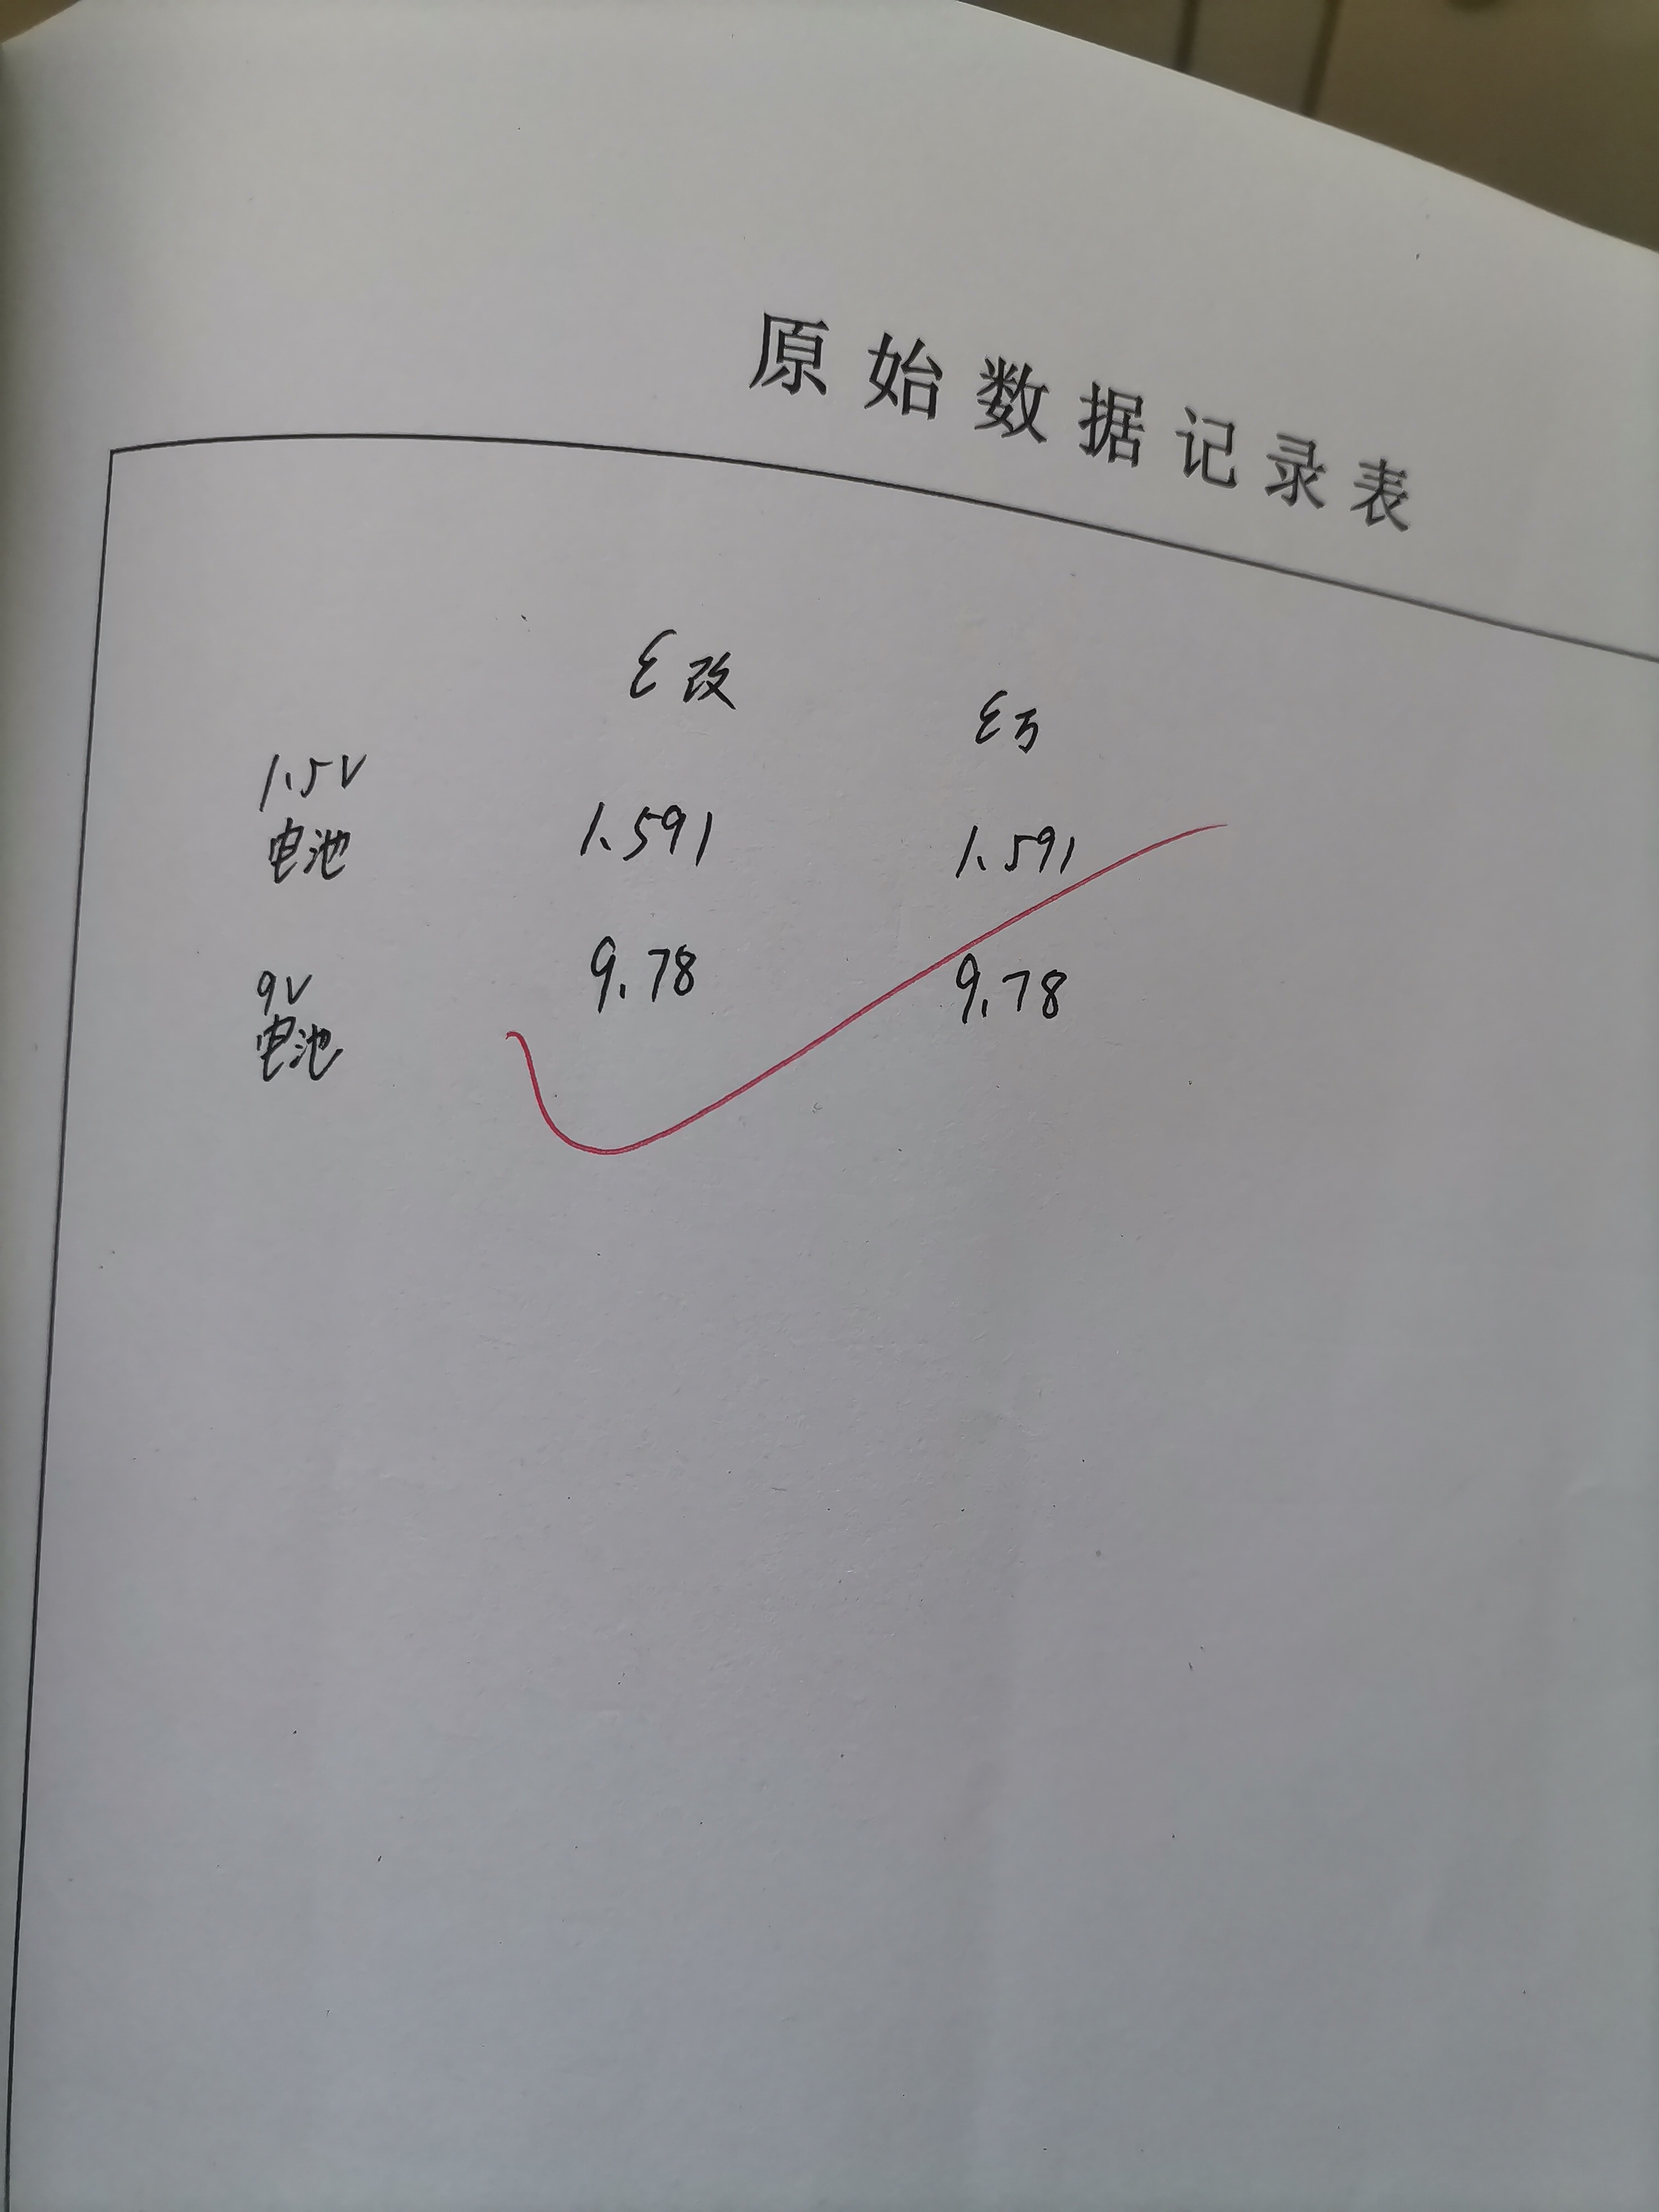 原始数据记录表
ε改 ε万
1.5V
电池 1.591 1.591
9V
电池 9.78 9.78